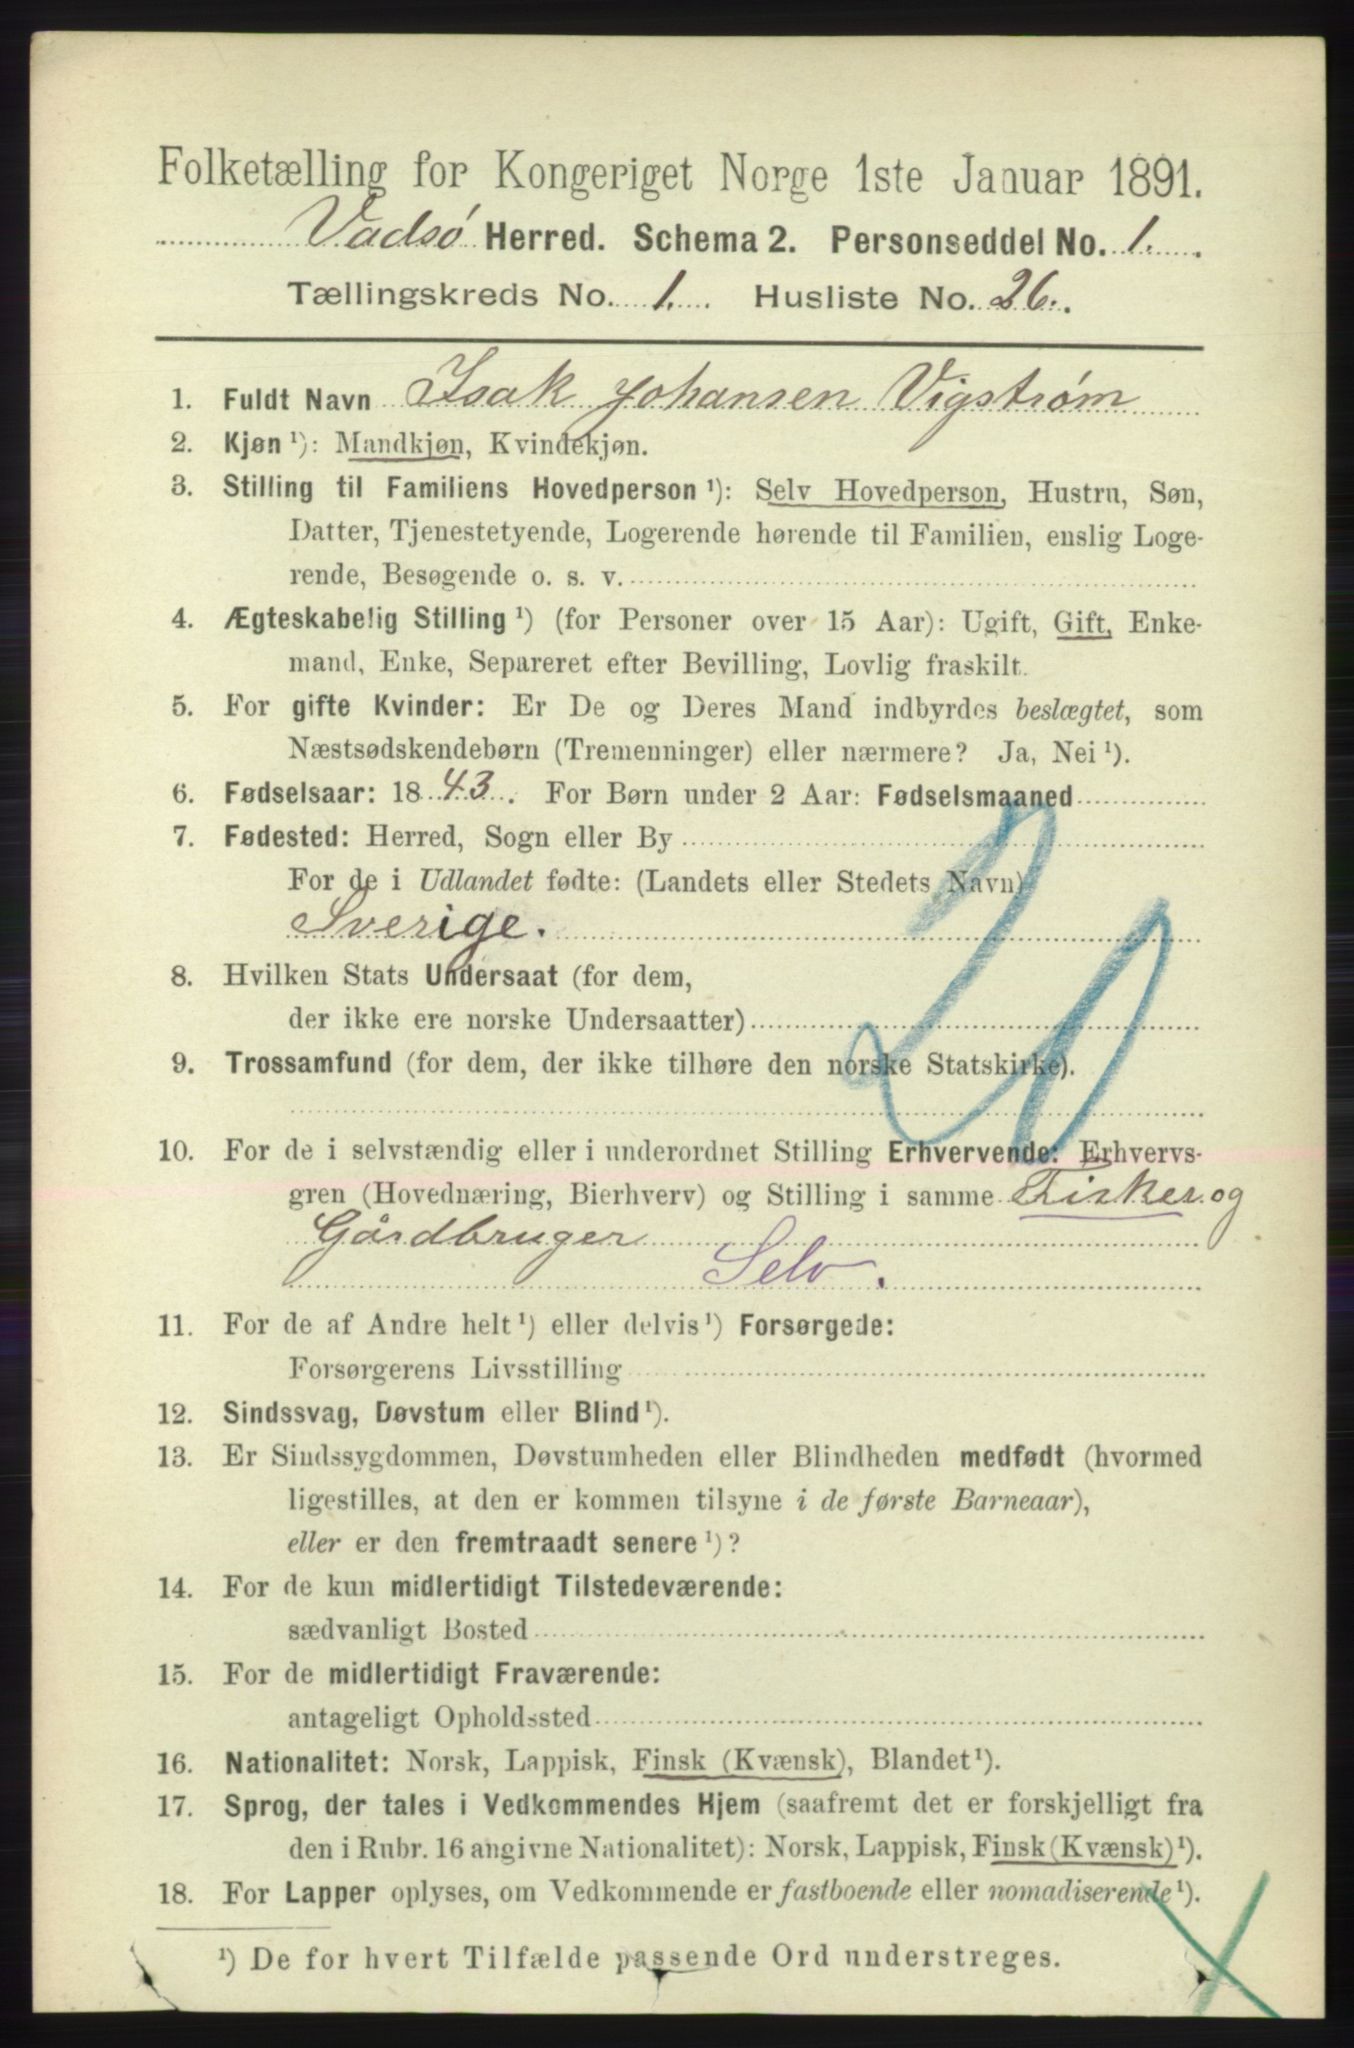 Folketælling for Kongeriget Norge 1ste Januar 1891.
Vadsø Herred. Schema 2. Personseddel No. 1.
Tællingskreds No. 1. Husliste No. 26.
1. Fuldt Navn Isak Johansen Vigstrøm
2. Kjøn ¹): Mandkjøn, Kvindekjøn.
3. Stilling til Familiens Hovedperson ¹): Selv Hovedperson, Hustru, Søn,
Datter, Tjenestetyende, Logerende hørende til Familien, enslig Loge-
rende, Besøgende o. s. v.
4. Ægteskabelig Stilling ¹) (for Personer over 15 Aar): Ugift, Gift, Enke-
mand, Enke, Separeret efter Bevilling, Lovlig fraskilt.
5. For gifte Kvinder: Er De og Deres Mand indbyrdes beslægtet, som
Næstsødskendebørn (Tremenninger) eller nærmere? Ja, Nei ¹).
6. Fødselsaar: 1843. For Børn under 2 Aar: Fødselsmaaned
7. Fødested: Herred, Sogn eller By
For de i Udlandet fødte: (Landets eller Stedets Navn)
Sverige.
20
8. Hvilken Stats Undersaat (for dem,
der ikke ere norske Undersaatter)
9. Trossamfund (for dem, der ikke tilhøre den norske Statskirke).
10. For de i selvstændig eller i underordnet Stilling Erhvervende: Erhvervs-
gren (Hovednæring, Bierhverv) og Stilling i samme Fisker og
Gårdbruger Selv.
11. For de af Andre helt ¹) eller delvis ¹) Forsørgede:
Forsørgerens Livsstilling
12. Sindssvag, Døvstum eller Blind ¹).
13. Er Sindssygdommen, Døvstumheden eller Blindheden medfødt (hvormed
ligestilles, at den er kommen tilsyne i de første Barneaar),
eller er den fremtraadt senere ¹)?
14. For de kun midlertidigt Tilstedeværende:
sædvanligt Bosted
15. For de midlertidigt Fraværende:
antageligt Opholdssted
16. Nationalitet: Norsk, Lappisk, Finsk (Kvænsk), Blandet ¹).
17. Sprog, der tales i Vedkommendes Hjem (saafremt det er forskjelligt fra
den i Rubr. 16 angivne Nationalitet): Norsk, Lappisk, Finsk (Kvænsk) ¹).
18. For Lapper oplyses, om Vedkommende er fastboende eller nomadiserende ¹).
¹) De for hvert Tilfælde passende Ord understreges.